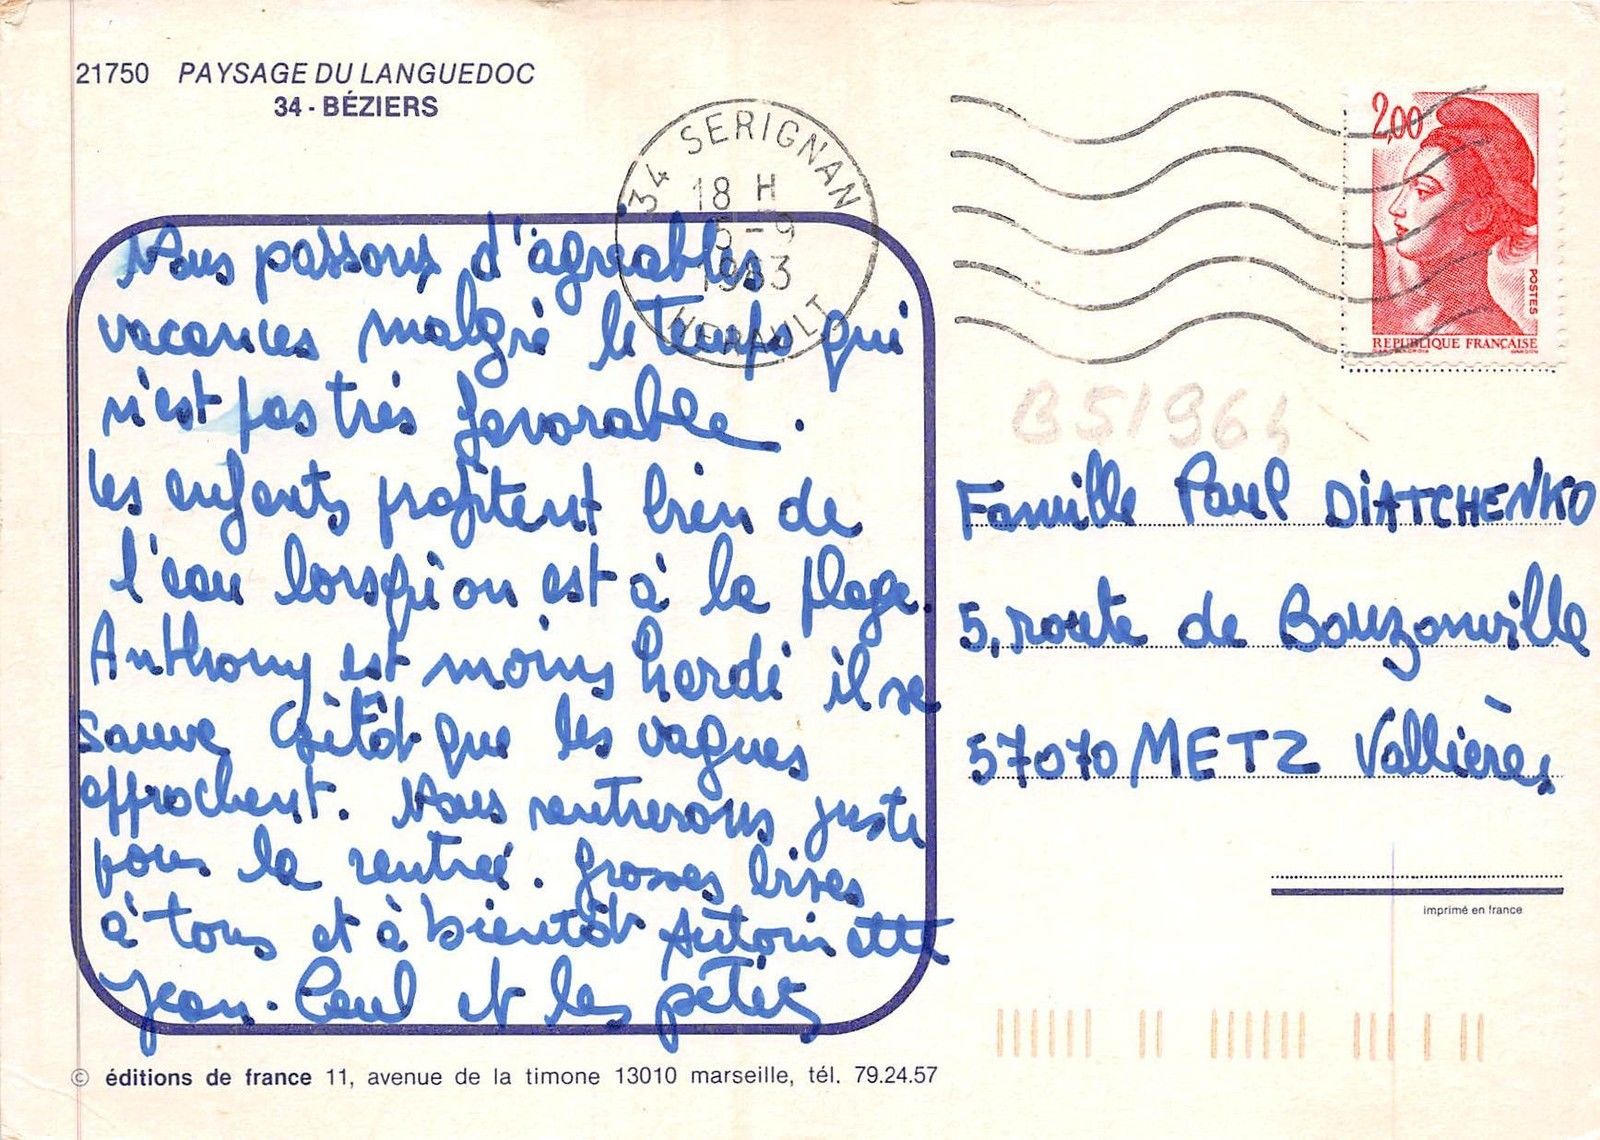 21750 PAYSAGE DU LANGUEDOC
34 - BÉZIERS
34 SERIGNAN
18 H
5-9
1983
HERAULT
2,00
POSTES
REPUBLIQUE FRANÇAISE
Nous passons d'agréables
vacances malgré le temps qui
n'est pas très favorable.
Les enfants profitent bien de
l'eau lorsqu'on est à la plage.
Anthony est moins hardi il se
sauve sitôt que les vagues
approchent. Nous rentrerons juste
pour la rentrée. Grosses bises
à tous et à bientôt Antoinette
Jean-Paul et les petits
B51964
Famille Paul DIATCHENKO
5, route de Bouzonville
57070 METZ Vallières
imprimé en france
© éditions de france 11, avenue de la timone 13010 marseille, tél. 79.24.57